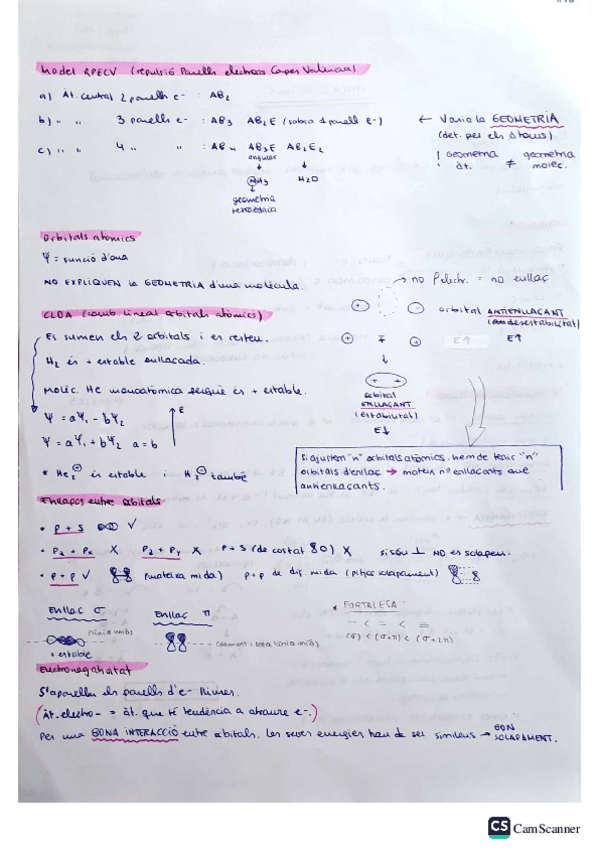 Model RPECV (repulsió Parells electrons Capa València)
a) Àt. central 2 parells e- : AB2
b) " " 3 parells e- : AB3 AB2E (sobra 1 parell e-) ← Varia la GEOMETRIA
(det. per els àtoms)
c) " " 4 " " : AB4 AB3E AB2E2
! geometria àt. ≠ geometria molec.
angular
NH3 H2O
geometria
tetraèdrica
Orbitals atòmics
Ψ = funció d'ona
NO EXPLIQUEN la GEOMETRIA d'una molècula.
→ no Pelectr. = no enllaç
CLOA (comb lineal orbitals atòmics)
orbital ANTIENLLAÇANT
(inestabilitat)
Es sumen els 2 orbitals i es resten.
+ + - E↑ E↑
H2 és + estable enllaçada.
Molèc. He monoatòmica perquè és + estable.
+ -
orbital
ENLLAÇANT
(estabilitat)
E↓
Ψ = aΨ1 - bΨ2
E
Ψ = aΨ1 + bΨ2 a = b
* He2+ és estable i H2- també
Si ajuntem "n" orbitals atòmics, hem de tenir "n"
orbitals d'enllaç → mateix nº enllaçants que
antienllaçants.
Enllaços entre orbitals
• p + s ✓
• Pz + Px X Pz + Py X p + s (de costat) X si són ⊥ NO es solapen.
• p + p ✓ (mateixa mida) p + p de dif. mida (pitjor solapament)
Enllaç σ
Enllaç π
* FORTALESA:
- < = < ≡
(σ) < (σ+π) < (σ+2π)
(línia unió)
(damunt i sota línia unió)
+ estable
Electronegativitat
S'aparellen els parells d'e- lliures.
(Àt. electro- = àt. que té tendència a atraure e-.)
Per una BONA INTERACCIÓ entre orbitals, les seves energies han de ser similars → BON
SOLAPAMENT.
CS CamScanner